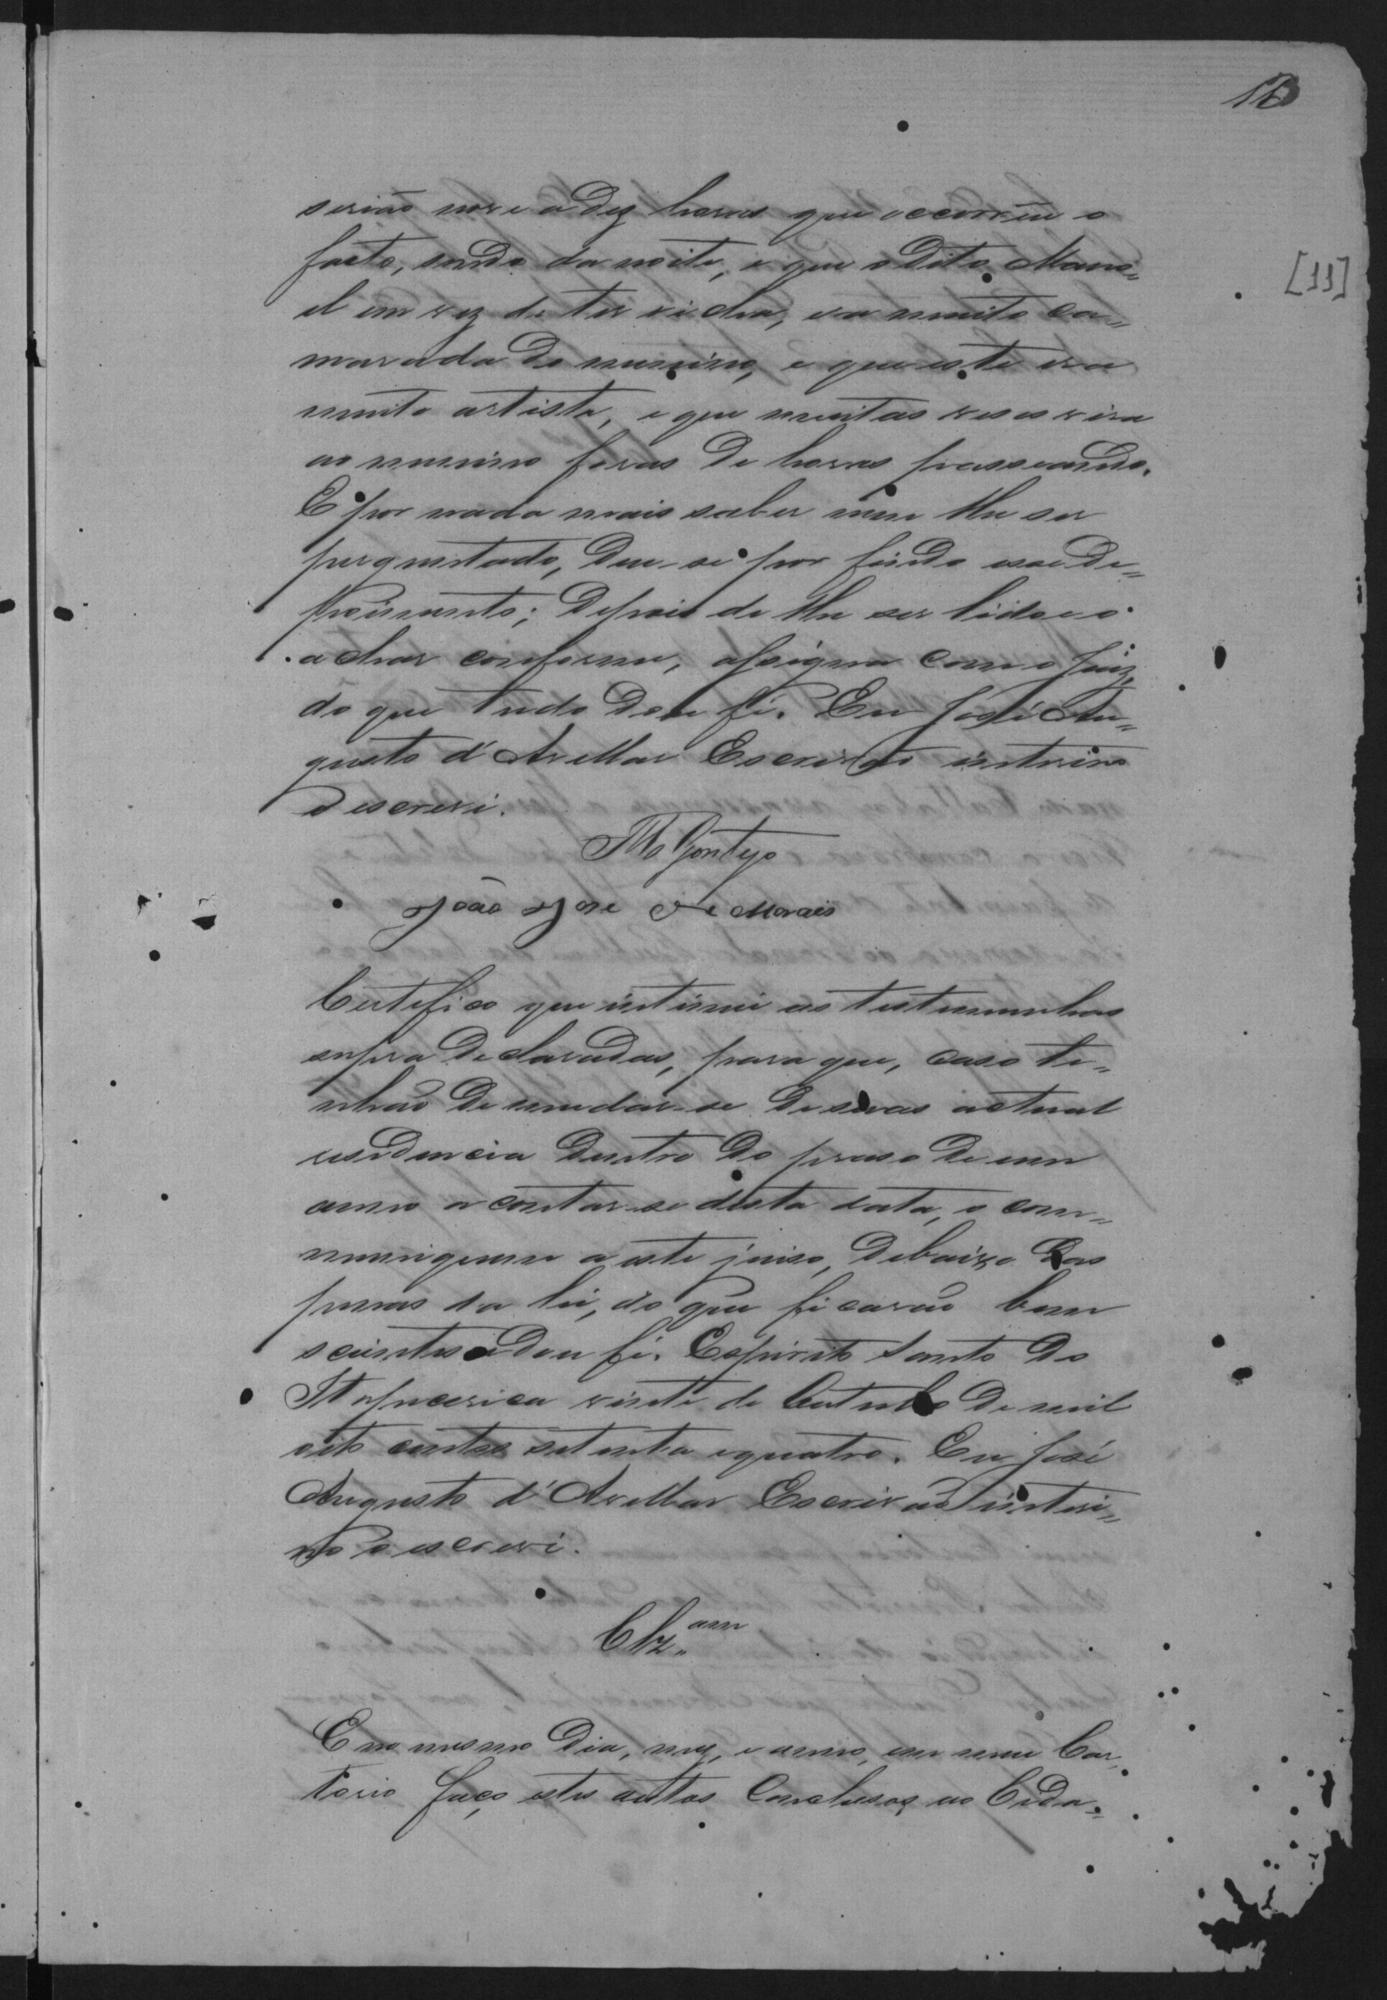 [11]
serião nove a dez horas que occorreu o
facto, sendo da noite, e que o dito Mano-
el em vez de ter richa, era muito ca-
marada do menino, e que este era
muito artista, e que muitas veses vira
ao menino foras de horas passeando.
E por nada mais saber nem lhe ser
perguntado, deu-se por findo esse de-
poimento; depois de lhe ser lido e o
achar conforme, assigna com o Juiz,
do que tudo dou fé. Eu José Au-
gusto d'Avellar Escrivão interino
o escrevi.
Gontijo
João Jose de Morais
Certefico que intimei as testemunhas
supra declaradas, para que, caso te-
nhão de mudar-se de suas actual
residencia dentro do praso de um
anno a contar-se desta data, o com-
muniquem a este juiso, debaixo das
penas da lei, do que ficarão bem
scientes e dou fé. Espirito Santo do
Itapecerica vinte de Outubro de mil
oito centos setenta e quatro. Eu José
Augusto d'Avellar Escrivão interi-
no o escrevi.
Clz.am
E no mesmo dia, mez, e anno, em meu Car-
torio faço estes autos conclusos ao Cida-